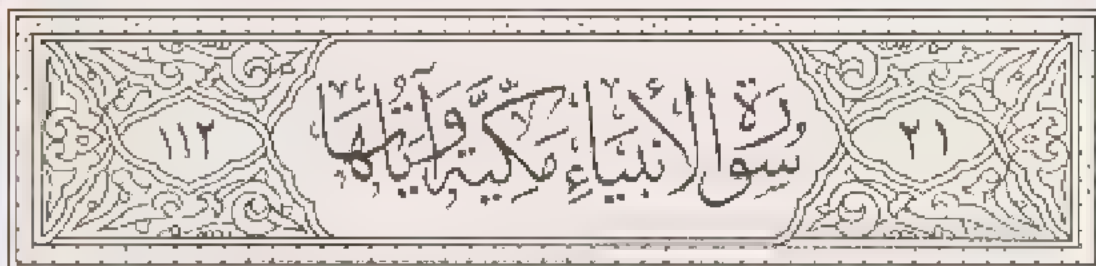 ٢١ سُورَةُ الْأَنْبِيَاءِ مَكِّيَّةٌ وَآيَاتُهَا ١١٢